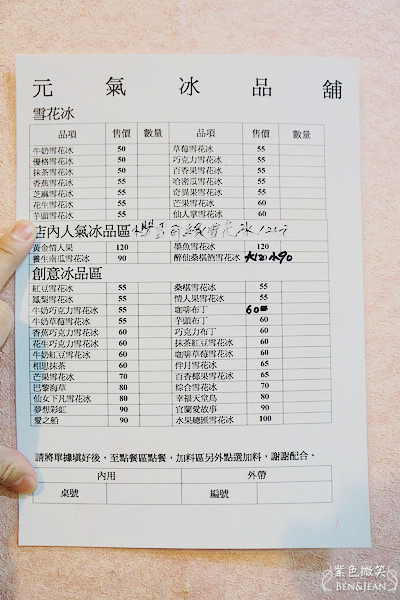 元氣冰品舖
雪花冰
品項 售價 數量 品項 售價 數量
牛奶雪花冰 50 草莓雪花冰 55
優格雪花冰 50 巧克力雪花冰 55
抹茶雪花冰 50 百香果雪花冰 55
香蕉雪花冰 55 哈密瓜雪花冰 55
芝麻雪花冰 55 奇異果雪花冰 55
花生雪花冰 55 芒果雪花冰 60
芋頭雪花冰 55 仙人掌雪花冰 60
店內人氣冰品區 雪花冰
黃金情人果 120 墨魚雪花冰 120
養生南瓜雪花冰 90 醉仙桑椹酒雪花冰 大120 小90
創意冰品區
紅豆雪花冰 55 桑椹雪花冰 55
鳳梨雪花冰 55 情人果雪花冰 55
牛奶巧克力雪花冰 55 咖啡布丁 60
牛奶草莓雪花冰 55 芋頭布丁 60
香蕉巧克力雪花冰 60 巧克力布丁 60
花生巧克力雪花冰 60 抹茶紅豆雪花冰 60
牛奶紅豆雪花冰 60 咖啡草莓雪花冰 60
相思抹茶 60 伴月雪花冰 65
芒果雪花冰 70 百香椰果雪花冰 65
巴黎海草 80 綜合雪花冰 70
仙女下凡雪花冰 80 幸福天堂鳥 80
夢想彩虹 90 宜蘭愛故事 90
愛之船 90 水果總匯雪花冰 100
請將單據填好後，至點餐區點餐，加料區另外點選加料，謝謝配合。
內用 外帶
桌號 編號
紫色微笑
BEN&JEAN